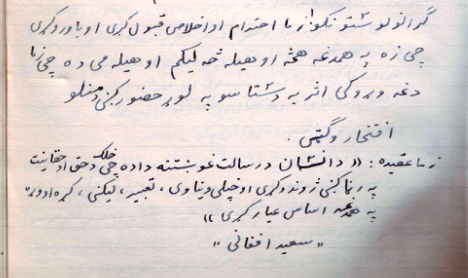 ګرانولوستونکو! زما احترام او اخلاص قبول کړی او باور وکړی
چی زه په همدغه هڅه او هیله څه لیکم او هیله می ده چی زما
دغه وړوکی اثر به ستاسو په لوړ حضور کښی د منلو
افتخار وګټی.
زما عقیده: «د انسان د رسالت غوښتنه داده چی خلک د حق او حقانیت
په رڼا کښی ژوند وکړی او خپلی دنیاوی، تعبیر، لیکنی، کړه او وړه
په همدغه اساس عیار کړی»
"سعید افغانی"